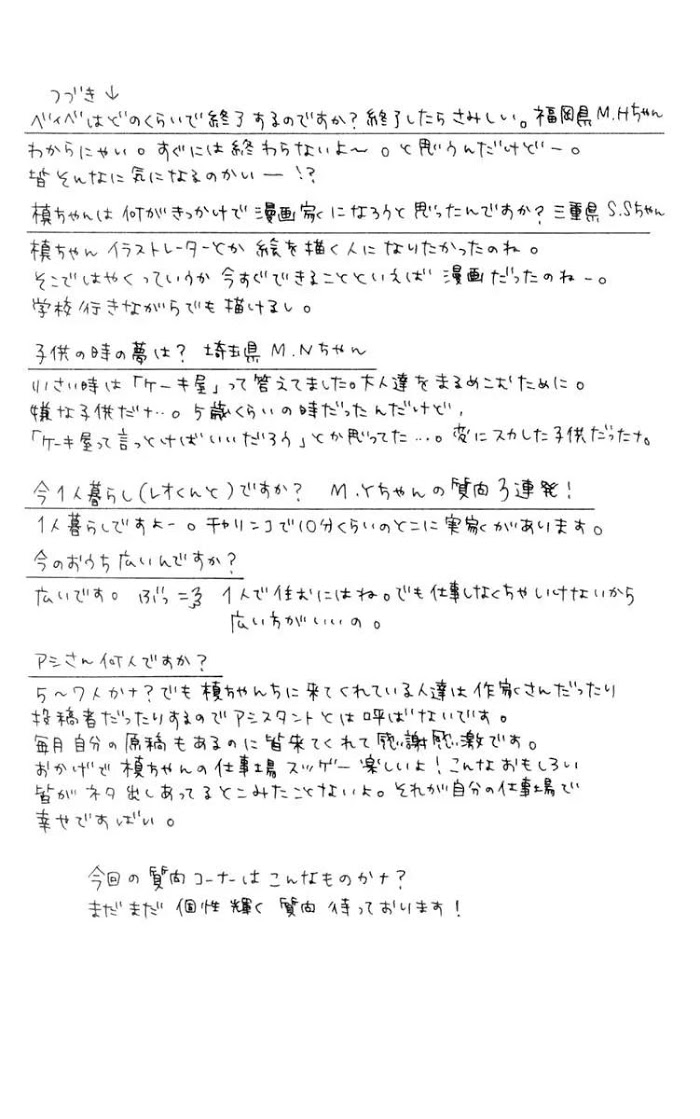 つづき↓
ベイベはどのくらいで終了するのですか?終了したらさみしい。福岡県M.Hちゃん
わからにゃい。すぐには終わらないよ〜。と思うんだけどー。
皆そんなに気になるのかいー!?
槙ちゃんは何がきっかけで漫画家になろうと思ったんですか?三重県S.Sちゃん
槙ちゃんイラストレーターとか絵を描く人になりたかったのね。
そこではやくっていうか今すぐできることといえば漫画だったのねー。
学校行きながらでも描けるし。
子供の時の夢は?埼玉県M.Nちゃん
小さい時は「ケーキ屋」って答えてました。大人達をまるめこむために。
嫌な子供だナ…。5歳くらいの時だったんだけど,
「ケーキ屋って言っとけばいいだろう」とか思ってた…。変にスカした子供だったナ。
今1人暮らし(レオくんと)ですか? M.Yちゃんの質問3連発!
1人暮らしですよー。チャリンコで10分くらいのとこに実家があります。
今のおうち広いんですか?
広いです。ぶっ 1人で住むにはね。でも仕事しなくちゃいけないから
広い方がいいの。
アシさん何人ですか?
5〜7人かナ?でも槙ちゃんちに来てくれている人達は作家さんだったり
投稿者だったりするのでアシスタントとは呼ばないです。
毎月自分の原稿もあるのに皆来てくれて感謝感激です。
おかげで槙ちゃんの仕事場スッゲー楽しいよ!こんなおもしろい
皆がネタ出しあってるとこみたことないよ。それが自分の仕事場で
幸せですばい。
今回の質問コーナーはこんなものかナ?
まだまだ個性輝く質問待っております!